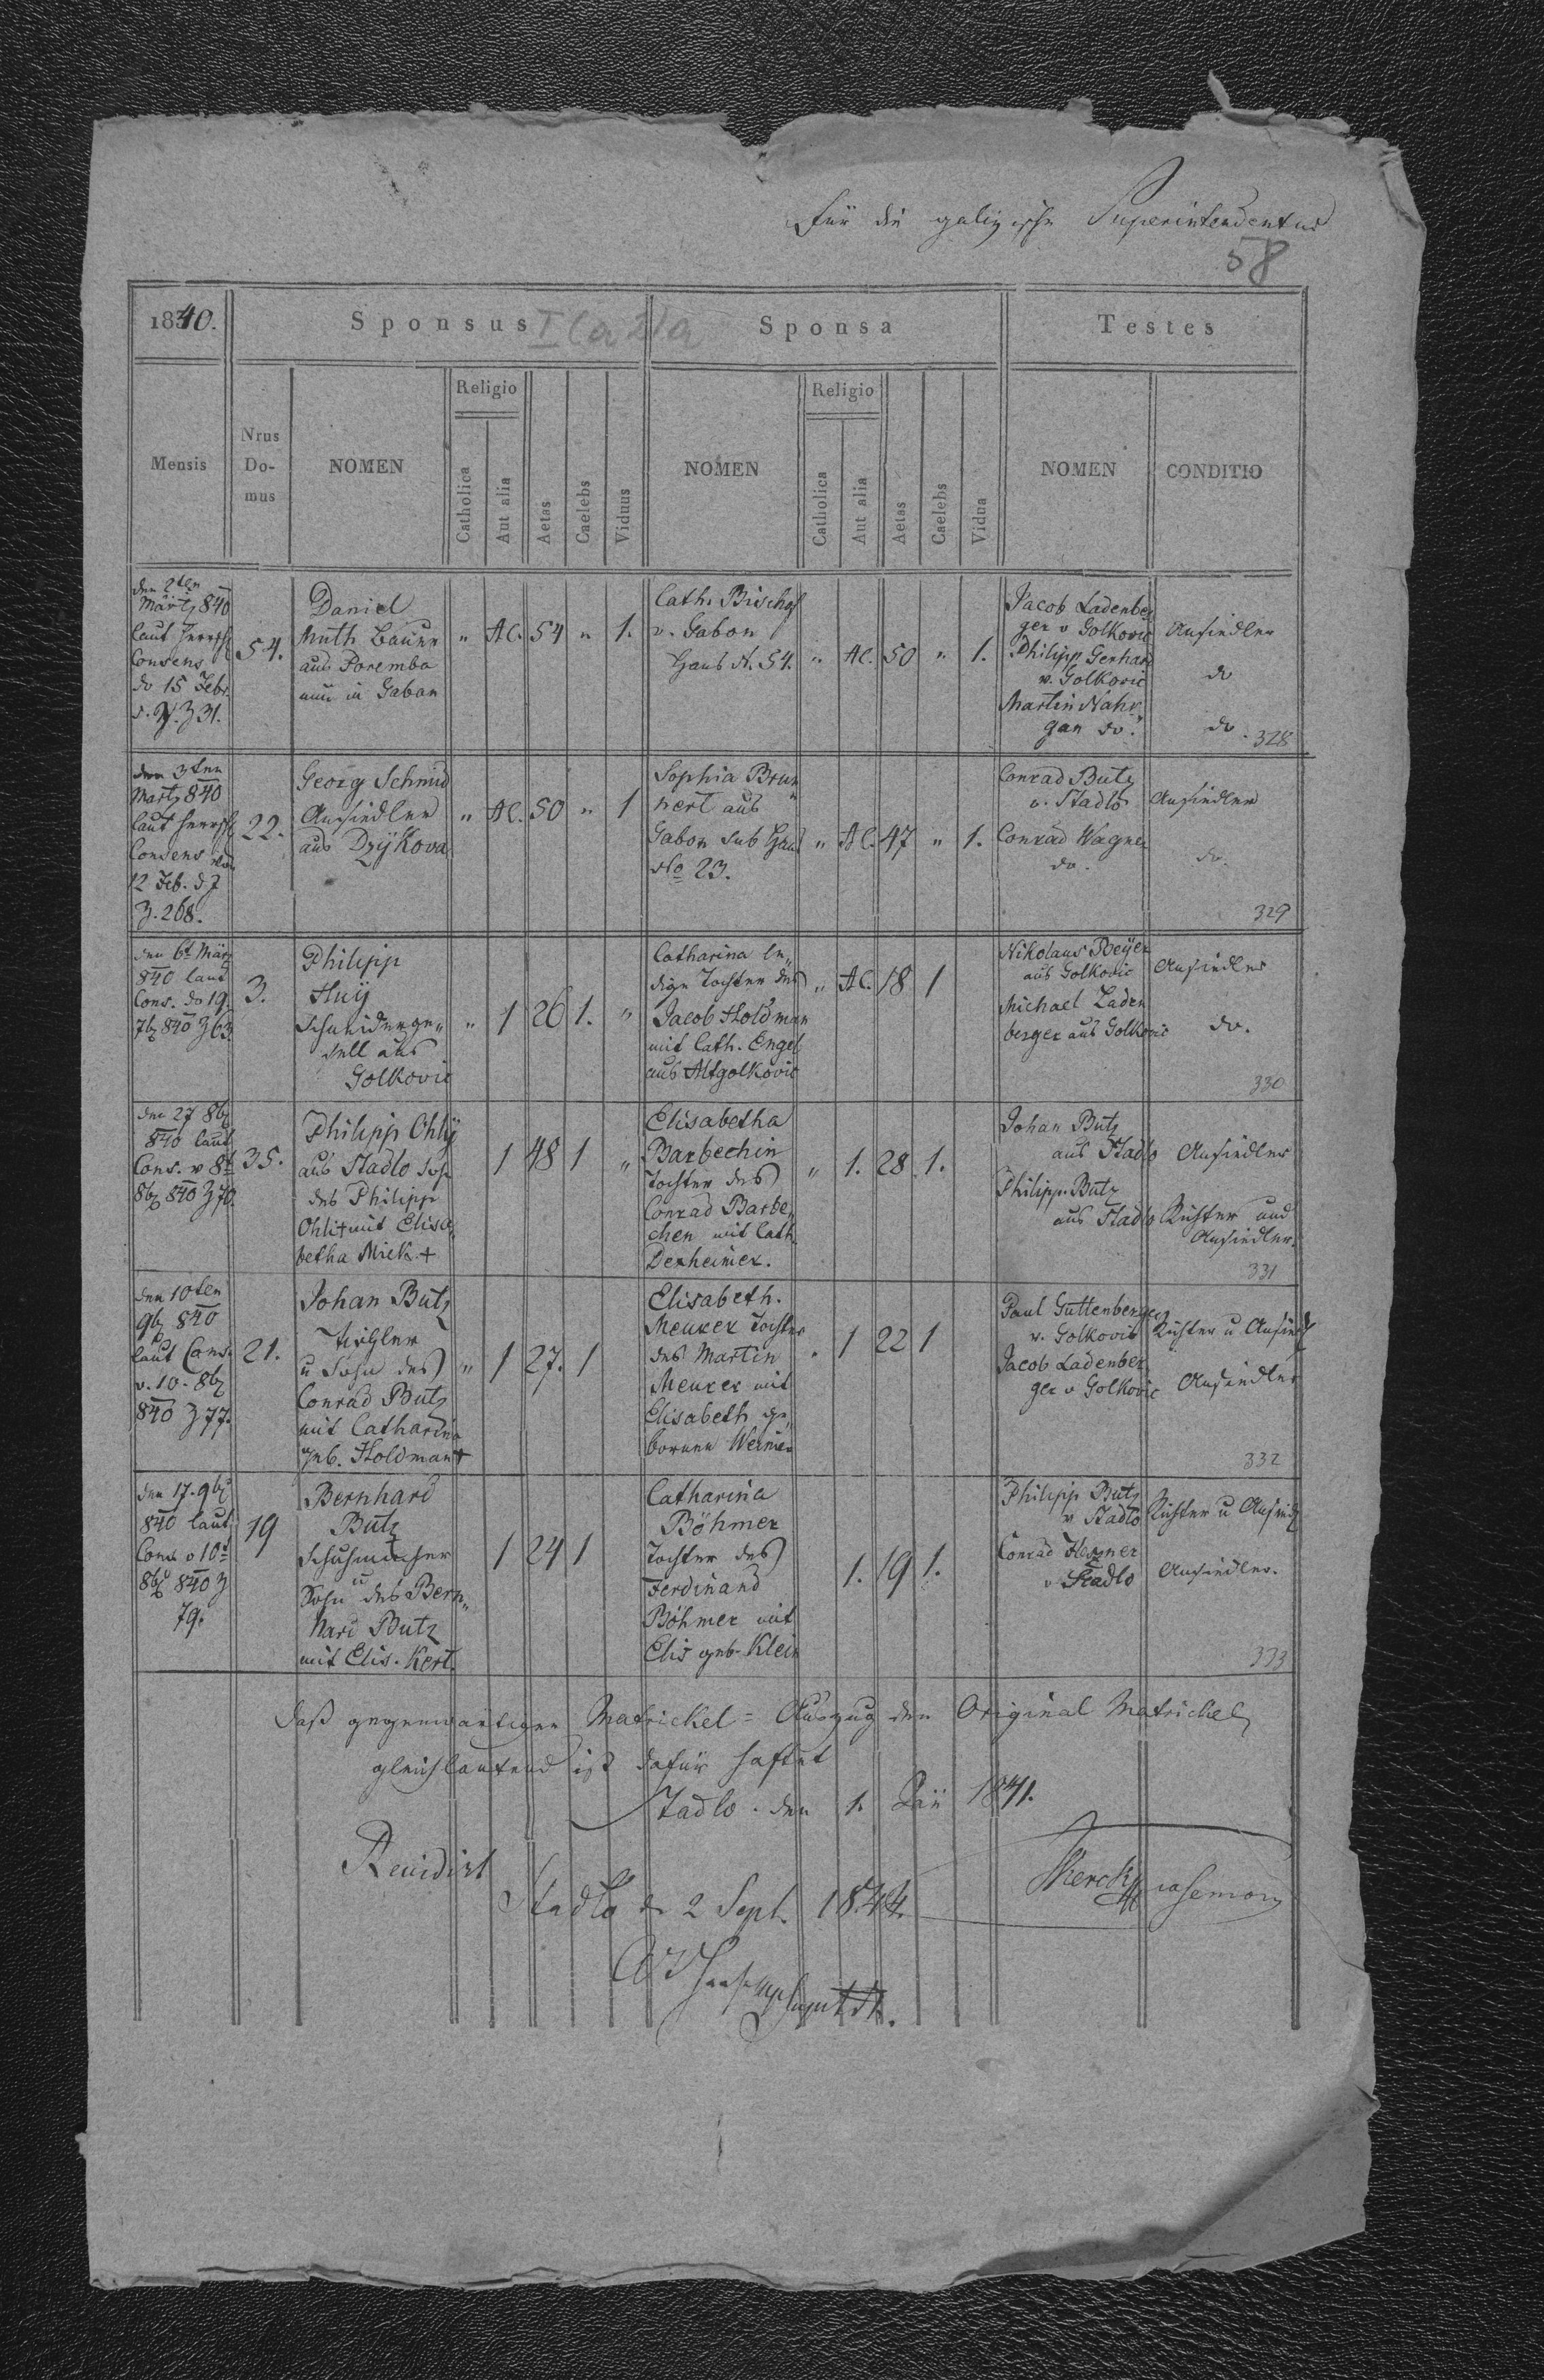 Für die galizische Superintendentur
58
1840. Sponsus Sponsa Testes
Mensis
Nrus Do-mus
NOMEN
Religio
Catholica
Aut alia
Aetas
Caelebs
Viduus
NOMEN
Religio
Catholica
Aut alia
Aetas
Caelebs
Vidua
NOMEN
CONDITIO
den 2ten
Märtz 840
laut herrsch
Consens
do 15 Febr.
Z 31.
54.
Daniel
Muth Bauer
aus Poremba
nun in Gabon
" AC. 54 " 1.
Cath. Bischof
v. Gabon
Haus N. 54.
" AC. 50 " 1.
Jacob Ladenber
ger v Golkovic
Philipp Gerhard
v. Golkovic
Martin Nahr
gan do.
Ansiedler
do
do.
328
den 3ten
Martz 840
laut herrsch
Consens von
12 Feb. d J
Z. 268.
22.
Georg Schmid
Ansiedler
aus Dzÿkova
" AC. 50 " 1
Sophia Brun
nert aus
Gabon sub Haus
No 23.
" AC. 47 " 1.
Conrad Butz
v. Stadlo
Conrad Wagner
do.
Ansiedler
do.
329
den 6t März
840 laut
Cons. do 19
7br 840 Z 63.
3.
Philipp
Huÿ
Schneiderge„
sell aus
Golkovic
" 1 26 1. "
Catharina le„
dige Tochter des
Jacob Holdman
mit Cath. Engel
aus Altgolkovic
" AC. 18 1
Nikolaus Beÿer
aus Golkovic
Michael Laden
berger aus Golkovic
Ansiedler
do.
330
den 27 8br
840 laut
Cons. v 8t
8br 840 Z 70.
35.
Philipp Ohlÿ
aus Stadlo Sohn
des Philipp
Ohli + mit Elisa„
betha Mick +
1 48 1 "
Elisabetha
Barbechin
Tochter des
Conrad Barbe„
chen mit Cath.
Dexheimer.
" 1. 28 1.
Johan Butz
aus Stadlo
Philipp Butz
aus Stadlo
Ansiedler
Richter und
Ansiedler.
331
den 10ten
9br 840
laut Cons.
v. 10. 8br
840 Z 77.
21.
Johan Butz
Tischler
u Sohn des
Conrad Butz
mit Catharina
geb. Holdman +
" 1 27. 1
Elisabeth.
Meurer Tochter
des Martin
Meurer mit
Elisabeth ge„
bornen Werner
. 1 22 1
Paul Guttenberger
v. Golkovic
Jacob Ladenber
ger v Golkovic
Richter u Ansiedl
Ansiedler
332
den 17. 9br
840 laut
Cons v 10t
8br 840 Z
79.
19
Bernhard
Butz
Schuhmacher
u
Sohn des Bern„
hard Butz
mit Elis. Kert.
1 24 1
Catharina
Böhmer
Tochter des
Ferdinand
Böhmer mit
Elis geb. Klein
1. 19 1.
Philipp Butz
v Stadlo
Conrad Hexmer
v Stadlo
Richter u Ansiedl
Ansiedler.
333
Daß gegenwärtiger Matrickel=Auszug den Original Matrickel
gleichlautend ist dafür haftet
Stadlo. den 1. 1841.
Revidirt
Stadlo d. 2 Sept. 1844.